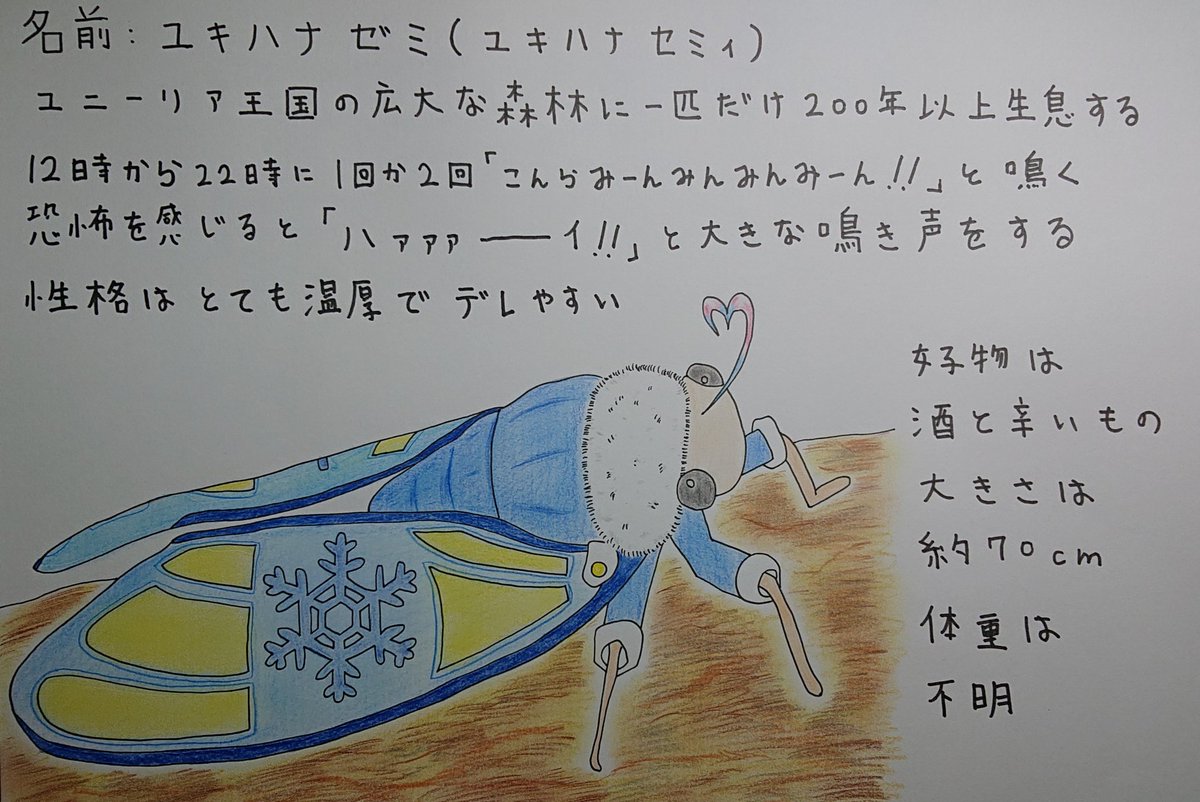 名前:ユキハナゼミ(ユキハナセミィ)
ユニーリア王国の広大な森林に一匹だけ200年以上生息する
12時から22時に1回か2回「こんらみーんみんみんみーん!!」と鳴く
恐怖を感じると「ハァァァ――イ!!」と大きな鳴き声をする
性格はとても温厚でデレやすい
好物は
酒と辛いもの
大きさは
約70cm
体重は
不明